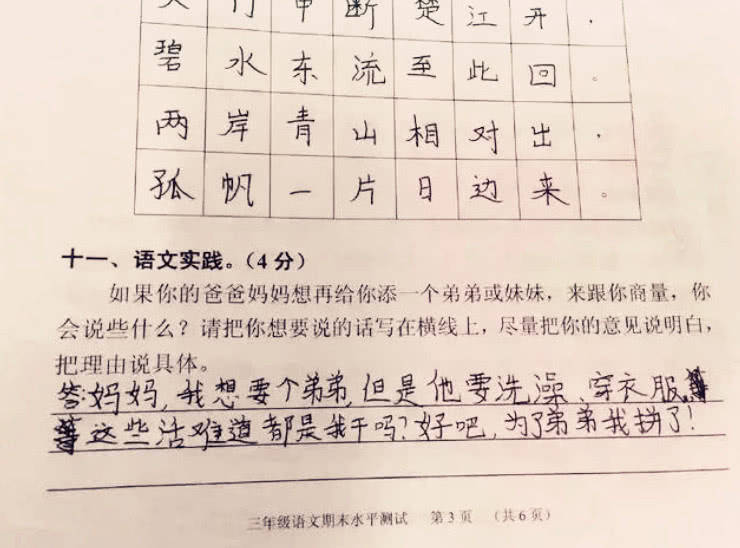 天门中断楚江开，
碧水东流至此回。
两岸青山相对出，
孤帆一片日边来。
十一、语文实践。（4分）
如果你的爸爸妈妈想再给你添一个弟弟或妹妹，来跟你商量，你
会说些什么？请把你想要说的话写在横线上，尽量把你的意见说明白，
把理由说具体。
答:妈妈，我想要个弟弟，但是他要洗澡、穿衣服
这些活难道都是我干吗？好吧，为了弟弟我拼了！
三年级语文期末水平测试 第3页 （共6页）